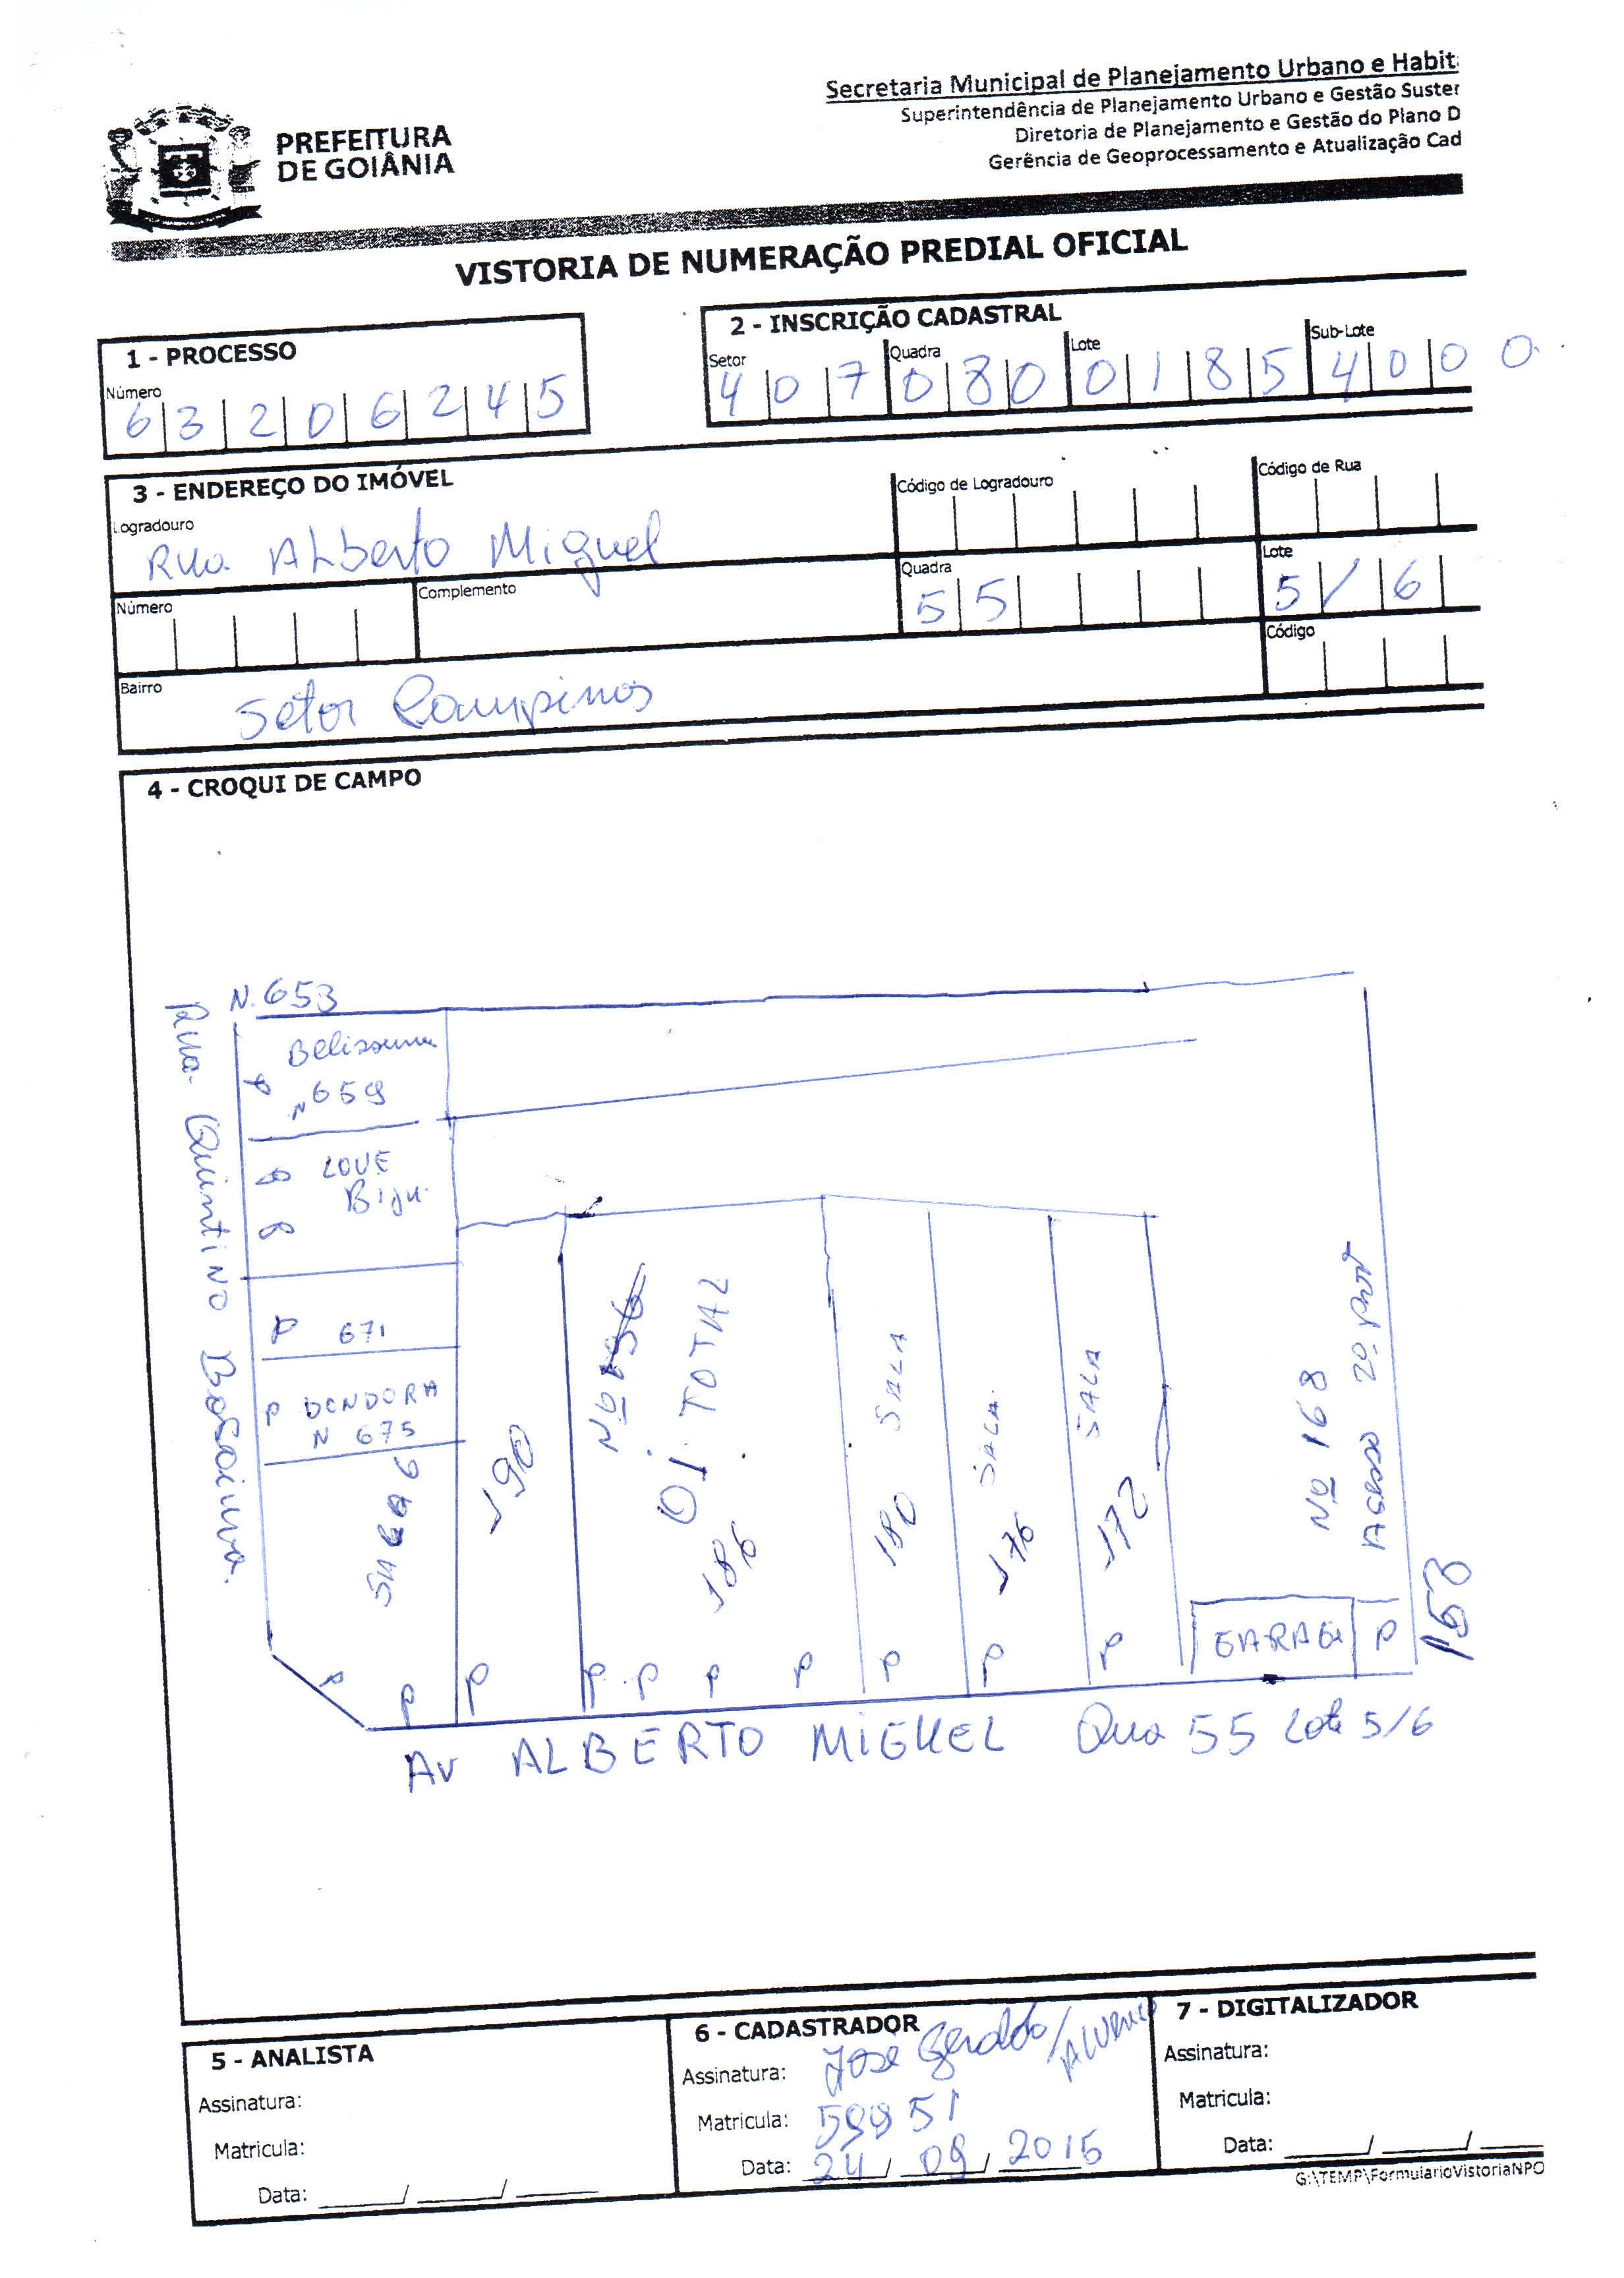 PREFEITURA
DE GOIÂNIA
Secretaria Municipal de Planejamento Urbano e Habit
Superintendência de Planejamento Urbano e Gestão Suster
Diretoria de Planejamento e Gestão do Plano D
Gerência de Geoprocessamento e Atualização Cad
VISTORIA DE NUMERAÇÃO PREDIAL OFICIAL
1 - PROCESSO
Número
6 3 2 0 6 2 4 5
2 - INSCRIÇÃO CADASTRAL
Setor Quadra Lote Sub-Lote
4 0 7 0 8 0 0 1 8 5 4 0 0 0
3 - ENDEREÇO DO IMÓVEL
Logradouro Código de Logradouro Código de Rua
Rua Alberto Miguel
Número Complemento Quadra Lote
55 5/6
Bairro Código
Setor Campinas
4 - CROQUI DE CAMPO
N. 653
Rua Quintino Bocaiuva
Belissima
P N 659
P LOVE
Biju.
P
P 671
P DONDORA
N 675
190
Nº
OI TOTAL
186
SALA
180
SALA
176
SALA
172
Nº 168
Acesso 2º Pav
GARAG P
P P P P P P P P P P
Av ALBERTO MIGUEL Qua 55 Lote 5/6
5 - ANALISTA
Assinatura:
Matricula:
Data: ______/ ______/ ______
6 - CADASTRADOR
Assinatura: José Geraldo/
Matricula: 59951
Data: 24/ 09/ 2015
7 - DIGITALIZADOR
Assinatura:
Matricula:
Data: ______/ ______/ ____
G:\TEMP\FormularioVistoriaNPO